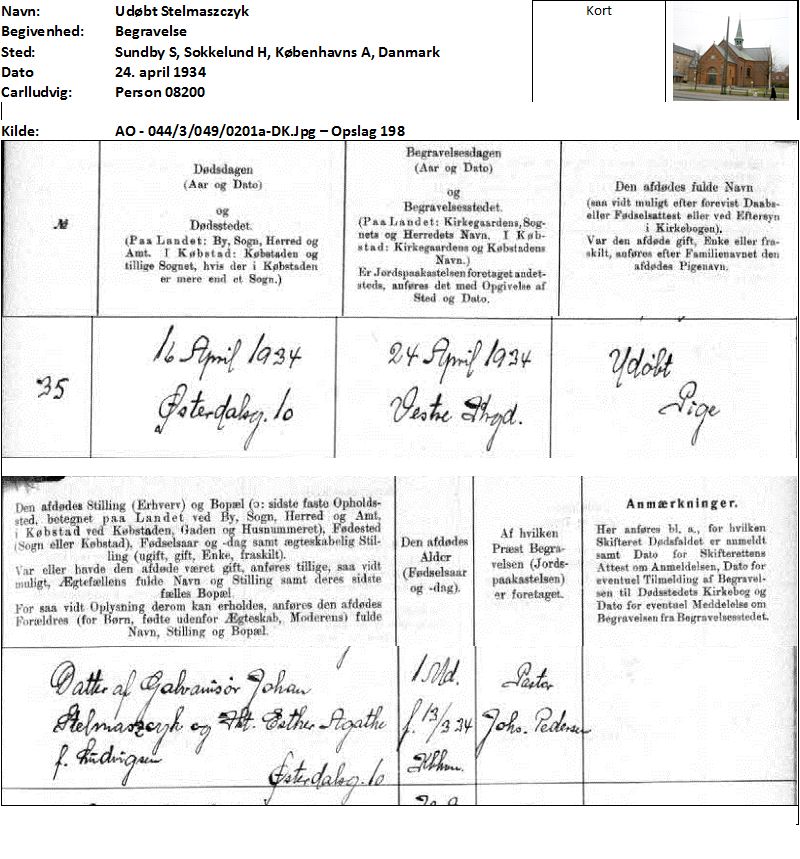 Navn: Udøbt Stelmaszczyk
Begivenhed: Begravelse
Sted: Sundby S, Sokkelund H, Københavns A, Danmark
Dato 24. april 1934
Carlludvig: Person 08200
Kort
Kilde: AO - 044/3/049/0201a-DK.Jpg – Opslag 198
№
Dødsdagen
(Aar og Dato)
og
Dødsstedet.
(Paa Landet: By, Sogn, Herred og
Amt. I Købstad: Købstaden og
tillige Sognet, hvis der i Købstaden
er mere end et Sogn.)
Begravelsesdagen
(Aar og Dato)
og
Begravelsesstedet.
(Paa Landet: Kirkegaardens, Sog-
nets og Herredets Navn. I Køb-
stad: Kirkegaardens og Købstadens
Navn.)
Er Jordspaakastelsen foretaget andet-
steds, anføres det med Opgivelse af
Sted og Dato.
Den afdødes fulde Navn
(saa vidt muligt efter forevist Daabs-
eller Fødselsattest eller ved Eftersyn
i Kirkebogen).
Var den afdøde gift, Enke eller fra-
skilt, anføres efter Familienavnet den
afdødes Pigenavn.
35
16 April 1934
Østerdalsg. 10
24 April 1934
Vestre Kgd.
Udøbt
Pige
Den afdødes Stilling (Erhverv) og Bopæl (ɔ: sidste faste Opholds-
sted, betegnet paa Landet ved By, Sogn, Herred og Amt,
i Købstad ved Købstaden, Gaden og Husnummeret), Fødested
(Sogn eller Købstad), Fødselsaar og -dag samt ægteskabelig Stil-
ling (ugift, gift, Enke, fraskilt).
Var eller havde den afdøde været gift, anføres tillige, saa vidt
muligt, Ægtefællens fulde Navn og Stilling samt deres sidste
fælles Bopæl.
For saa vidt Oplysning derom kan erholdes, anføres den afdødes
Forældres (for Børn, fødte udenfor Ægteskab, Moderens) fulde
Navn, Stilling og Bopæl.
Den afdødes
Alder
(Fødselsaar
og -dag).
Af hvilken
Præst Begra-
velsen (Jords-
paakastelsen)
er foretaget.
Anmærkninger.
Her anføres bl. a., for hvilken
Skifteret Dødsfaldet er anmeldt
samt Dato for Skifterettens
Attest om Anmeldelsen, Dato for
eventuel Tilmelding af Begravel-
sen til Dødsstedets Kirkebog og
Dato for eventuel Meddelelse om
Begravelsen fra Begravelsesstedet.
Datter af Galvanisør Johan
Stelmaszcyk og Hst. Esther Agathe
f. Ludvigsen
Østerdalsg. 10
1 Md.
f. 13/3 34
Kbhvn.
Pastor
Johs. Pedersen